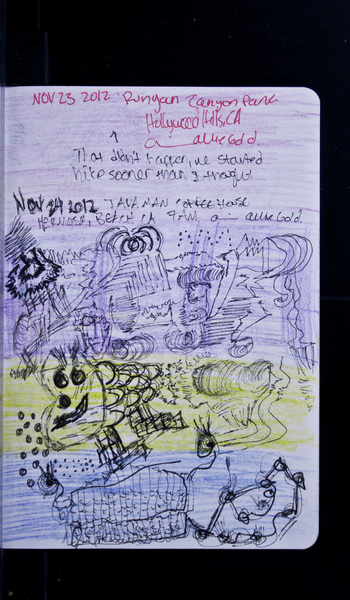 NOV 23 2012 Runyan Canyon Park
Hollywood Hills, CA
allie Gold.
That didn't happen, we started
hike sooner than I thought
NOV 24 2012 JAVA MAN Coffee House
HERMOSA BEACH CA 9AM, allie Gold.